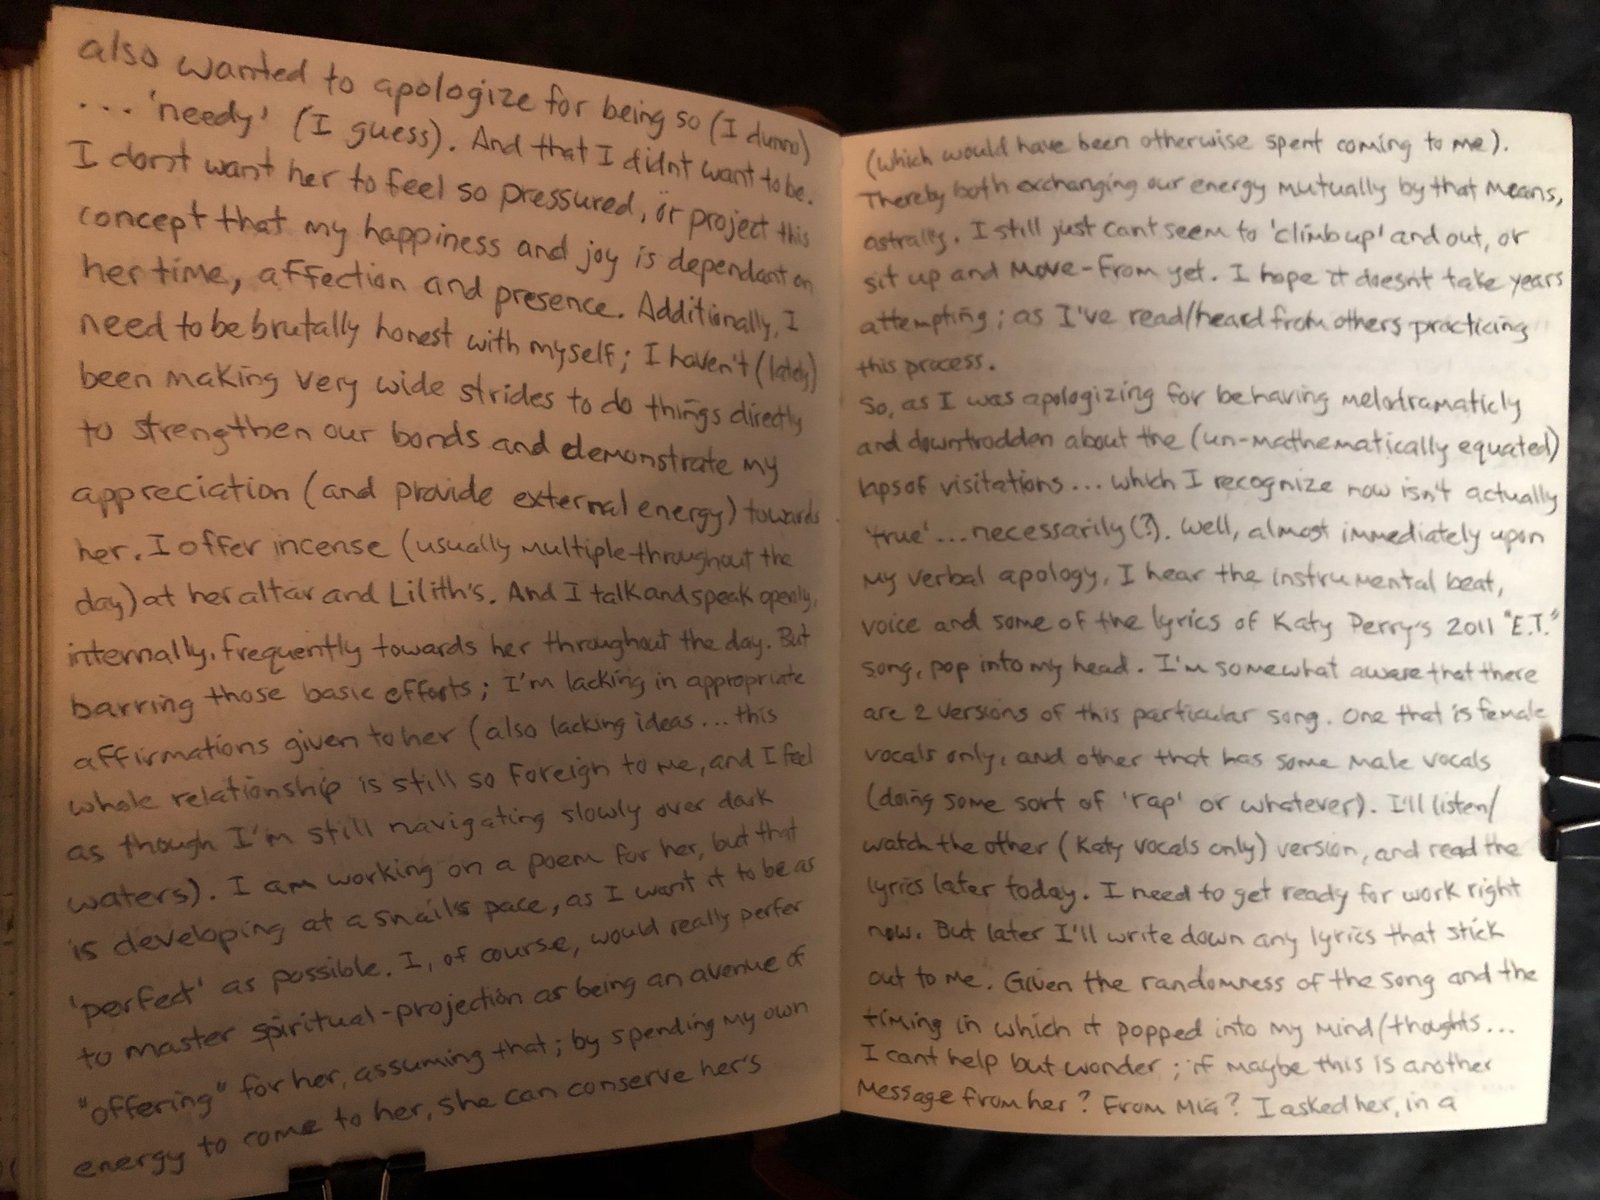 also wanted to apologize for being so (I dunno)
... 'needy' (I guess). And that I didnt want to be.
I dont want her to feel so pressured, or project this
concept that my happiness and joy is dependant on
her time, affection and presence. Additionally, I
need to be brutally honest with myself; I haven't (lately)
been making very wide strides to do things directly
to strengthen our bonds and demonstrate my
appreciation (and provide external energy) towards
her. I offer incense (usually multiple throughout the
day) at her altar and Lilith's. And I talk and speak openly,
internally, frequently towards her throughout the day. But
barring those basic efforts; I'm lacking in appropriate
affirmations given to her (also lacking ideas... this
whole relationship is still so foreign to me, and I feel
as though I'm still navigating slowly over dark
waters). I am working on a poem for her, but that
is developing at a snails pace, as I want it to be as
'perfect' as possible. I, of course, would really perfer
to master spiritual-projection as being an avenue of
"offering" for her, assuming that; by spending my own
energy to come to her, she can conserve her's
(which would have been otherwise spent coming to me).
Thereby both exchanging our energy mutually by that means,
astrally. I still just cant seem to 'climb up' and out, or
sit up and move-from yet. I hope it doesnt take years
attempting; as I've read/heard from others practicing
this process.
So, as I was apologizing for behaving melodramaticly
and downtrodden about the (un-mathematically equated)
laps of visitations... which I recognize now isn't actually
'true'... necessarily(?). Well, almost immediately upon
my verbal apology, I hear the instrumental beat,
voice and some of the lyrics of Katy Perry's 2011 "E.T."
song, pop into my head. I'm somewhat aware that there
are 2 versions of this particular song. One that is female
vocals only, and other that has some male vocals
(doing some sort of 'rap' or whatever). I'll listen/
watch the other (Katy vocals only) version, and read the
lyrics later today. I need to get ready for work right
now. But later I'll write down any lyrics that stick
out to me. Given the randomness of the song and the
timing in which it popped into my mind/thoughts...
I cant help but wonder; if maybe this is another
message from her? From Mia? I asked her, in a